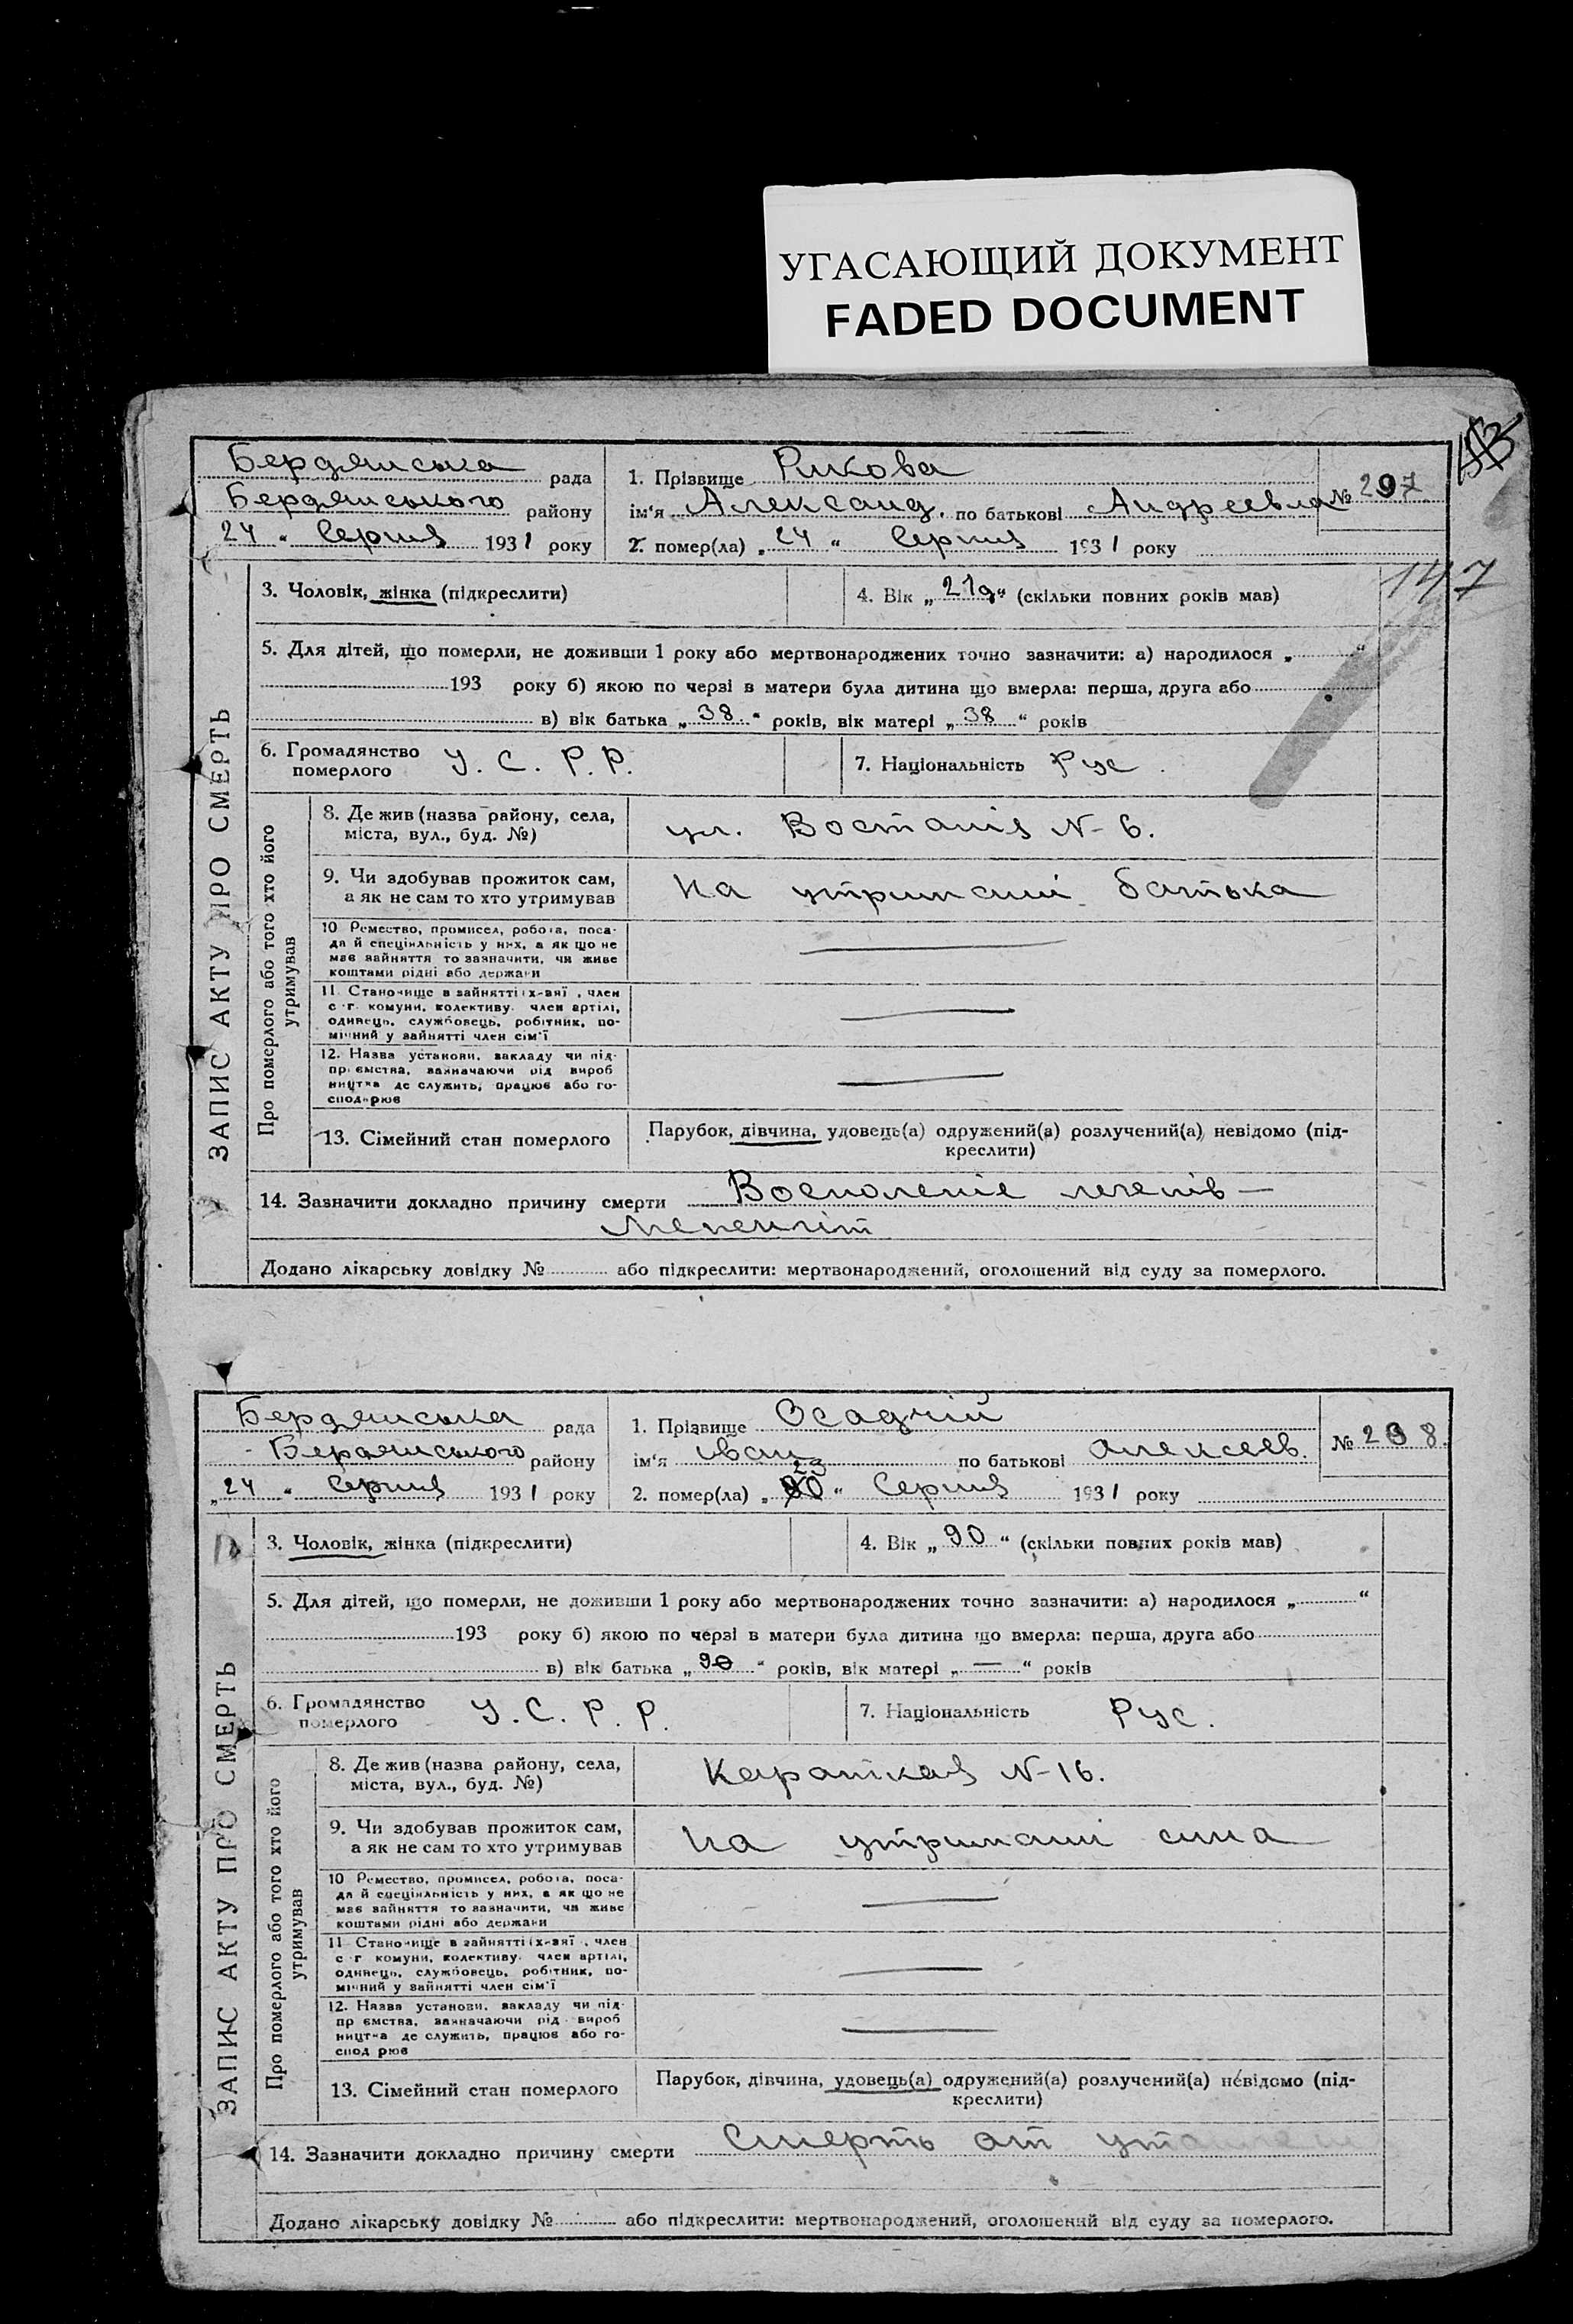 УГАСАЮЩИЙ ДОКУМЕНТ
FADED DOCUMENT
Бердянська рада
Бердянського району
24 " Серпня 1931 року
1. Прізвище Рикова
ім'я Александ. по батькові Андреевна
2. помер(ла) „ 24 “ Серпня 1931 року
№ 297
147
ЗАПИС АКТУ ПРО СМЕРТЬ
3. Чоловік, жінка (підкреслити)
4. Вік „ 21 “ (скільки повних років мав)
5. Для дітей, що померли, не доживши 1 року або мертвонароджених точно зазначити: а) народилося „ “
193 року б) якою по черзі в матери була дитина що вмерла: перша, друга або
в) вік батька „ 38 “ років, вік матері „ 38 “ років
6. Громадянство
померлого У. С. Р. Р.
7. Національність Рус.
Про померлого або того хто його
утримував
8. Де жив (назва району, села,
міста, вул., буд. №)
ул. Востанія N- 6.
9. Чи здобував прожиток сам,
а як не сам то хто утримував
На утриманні батька
10 Ремество, промисел, робота, поса-
да й спеціяльність у них, а як що не
має зайняття то зазначити, чи живе
коштами рідні або держави
11. Становище в зайнятті (х-вяї , член
с-г. комуни, колективу, член артілі,
одинець, службовець, робітник, по-
мічний у зайнятті член сім'ї
12. Назва установи, закладу чи під-
приємства, зазначаючи рід вироб
ництва де служить, працює або го-
сподарює
13. Сімейний стан померлого
Парубок, дівчина, удовець(а) одружений(а) розлучений(а) невідомо (під-
креслити)
14. Зазначити докладно причину смерти Восполеніе легенів —
Мененгіт
Додано лікарську довідку № або підкреслити: мертвонароджений, оголошений від суду за померлого.
Бердянська рада
Бердянського району
„ 24 “ Серпня 1931 року
1. Прізвище Осадчій
ім'я Иван по батькові Алексеев.
23
2. помер(ла) „ “ Серпня 1931 року
№ 298
ЗАПИС АКТУ ПРО СМЕРТЬ
3. Чоловік, жінка (підкреслити)
4. Вік „ 90 “ (скільки повних років мав)
5. Для дітей, що померли, не доживши 1 року або мертвонароджених точно зазначити: а) народилося „ “
193 року б) якою по черзі в матери була дитина що вмерла: перша, друга або
в) вік батька „ 90 “ років, вік матері „ — “ років
6. Громадянство
померлого У. С. Р. Р.
7. Національність Рус.
Про померлого або того хто його
утримував
8. Де жив (назва району, села,
міста, вул., буд. №)
N-16.
9. Чи здобував прожиток сам,
а як не сам то хто утримував
На утриманні сина
10 Ремество, промисел, робота, поса-
да й спеціяльність у них, а як що не
має зайняття то зазначити, чи живе
коштами рідні або держави
11 Становище в зайнятті (х-вяї , член
с-г комуни, колективу, член артілі,
одинець, службовець, робітник, по-
мічний у зайнятті член сім'ї
12. Назва установи, закладу чи під-
приємства, зазначаючи рід вироб
ництва де служить, працює або го-
сподарює
13. Сімейний стан померлого
Парубок, дівчина, удовець(а) одружений(а) розлучений(а) невідомо (під-
креслити)
14. Зазначити докладно причину смерти Смерть от
Додано лікарську довідку № або підкреслити: мертвонароджений, оголошений від суду за померлого.